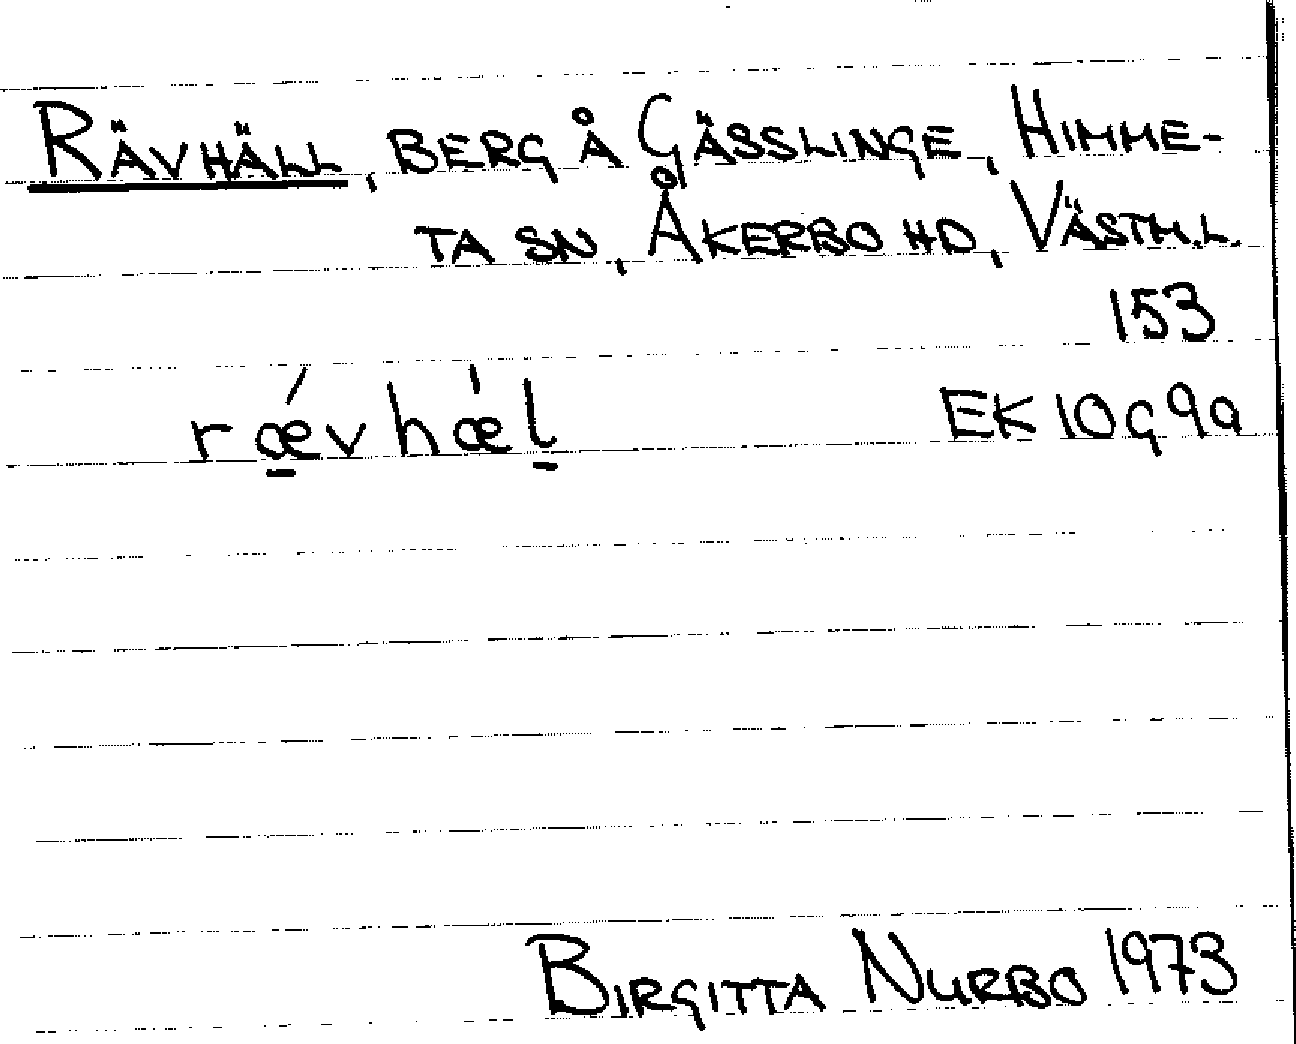 RÄVHÄLL, BERG Å GÄSSLINGE, HIMME-
TA SN, ÅKERBO HD, VÄSTM.L.
153
rǽ̱vhæ̍ḻ EK 10G9a
BIRGITTA NURBO 1973